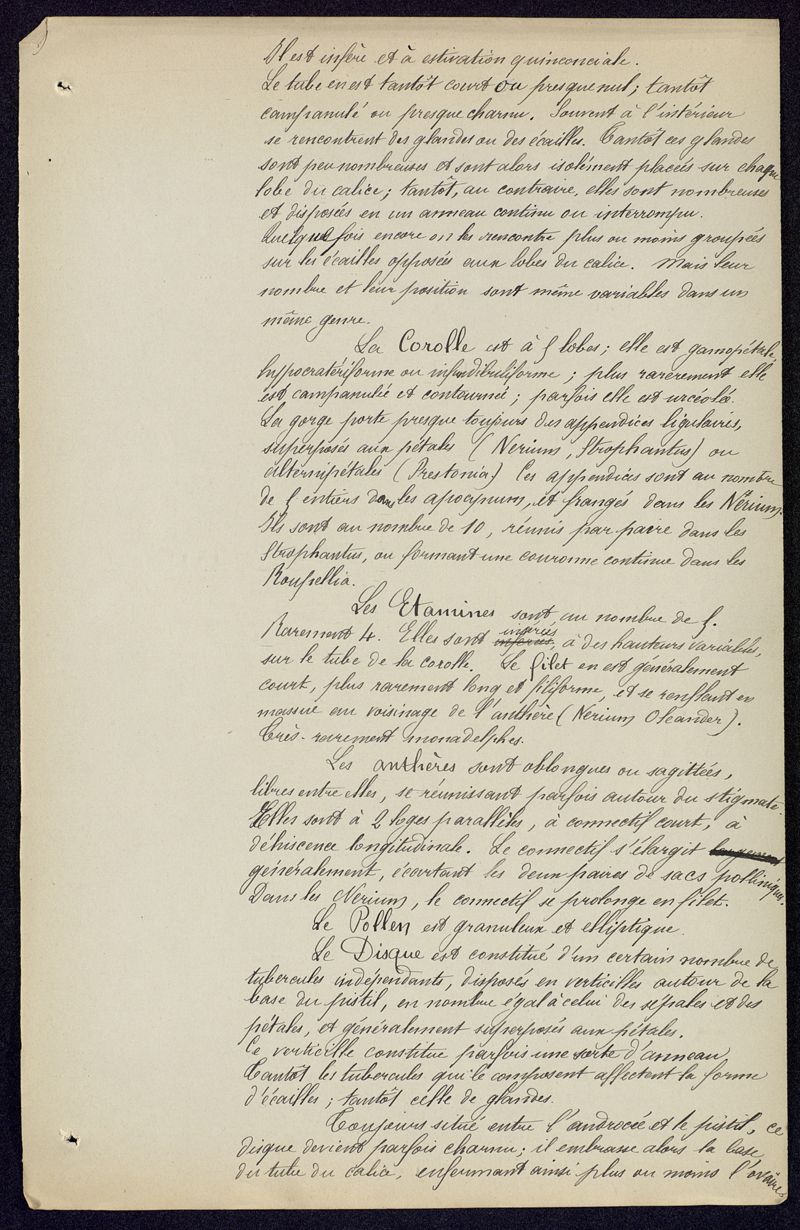 Il est infère et à estivation quinconciale.
Le tube en est tantôt court ou presque nul; tantôt
campanulé ou presque charnu. Souvent à l'intérieur
se rencontrent des glandes ou des écailles. Tantôt ces glandes
sont peu nombreuses et sont alors isolément placées sur chaque
lobe du calice; tantôt, au contraire, elles sont nombreuses
et disposées en un anneau continu ou interrompu.
Quelquefois encore on les rencontre plus ou moins groupées
sur les écailles opposées aux lobes du calice. Mais leur
nombre et leur position sont même variables dans un
même genre.
La Corolle est à 5 lobes; elle est gamopétale,
hypocratériforme ou infundibuliforme; plus rarement elle
est campanulée et contournée; parfois elle est urcéolá.
La gorge porte presque toujours des appendices ligulaires,
superposés aux pétales (Nerium, Strophantus) ou
alternipétales (Prestonia) Ces appendices sont au nombre
de 5 entiers dans les apocynum, et frangés dans les Nérium.
Ils sont au nombre de 10, réunis par paire dans les
Strophantus, ou formant une couronne continue dans les
Roupellia.
Les Etamines sont au nombre de 5.
Rarement 4. Elles sont insérées, à des hauteurs variables,
sur le tube de la corolle. Le filet en est généralement
court, plus rarement long et filiforme, et se renflant en
massue au voisinage de l'anthère (Nerium Oleander).
Très-rarement monadelphes.
Les anthères sont oblongues ou sagittées,
libres entre elles, se réunissant parfois autour du stigmate.
Elles sont à 2 loges parallèles, à connectif court, à
déhiscence longitudinale. Le connectif s'élargit largement
généralement, écartant les deux paires de sacs polliniques.
Dans les Nerium, le connectif se prolonge en filet.
Le Pollen est granuleux et elliptique.
Le Disque est constitué d'un certain nombre de
tubercules indépendants, disposés en verticilles autour de la
base du pistil, en nombre égal à celui des sépales et des
pétales, et généralement superposés aux pétales.
Ce verticille constitue parfois une sorte d'anneau.
Tantôt les tubercules qui le composent affectent la forme
d'écailles; tantôt celle de glandes.
Toujours situé entre l'androcée et le pistil, ce
disque devient parfois charnu; il embrasse alors la base
du tube du calice, enfermant ainsi plus ou moins l'ovaire